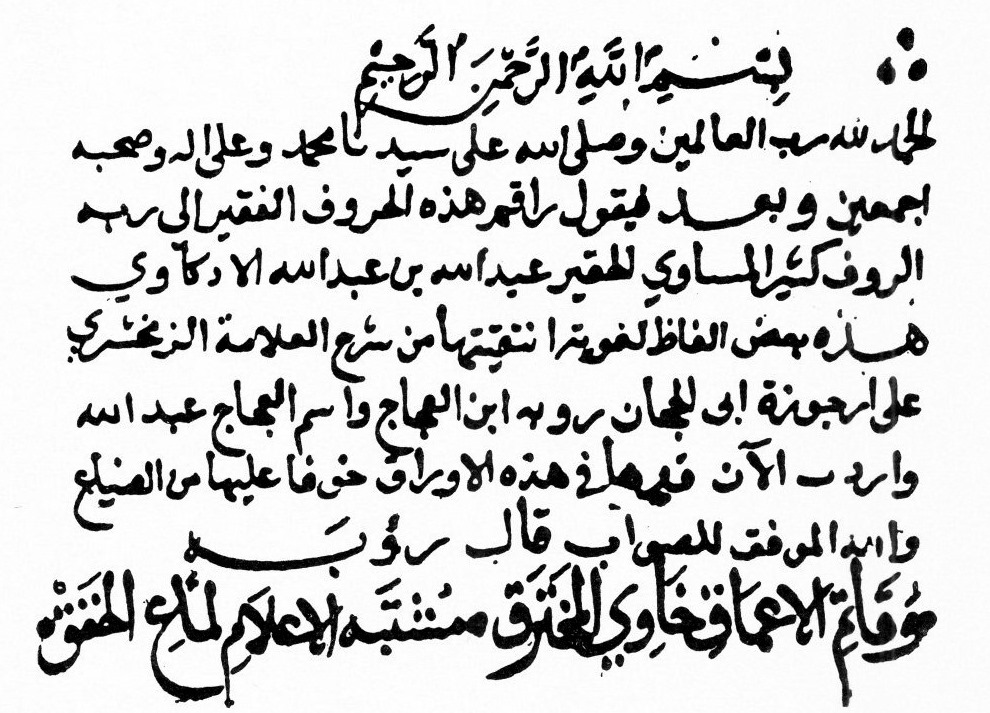 بِسْمِ اللَّهِ الرَّحْمَنِ الرَّحِيمِ
الحمد لله رب العالمين وصلى الله على سيدنا محمد وعلى اله وصحبه
اجمعين وبعد فيقول راقم هذه الحروف الفقير الى ربه
الروف كثير المساوي الحقير عبد الله بن عبد الله الادكاوي
هذه بعض الفاظ لغوية انتقيتها من شرح العلامة الزمخشري
على ارجوزة ابى الجحان روبه ابن العجاج واسم العجاج عبد الله
واردت الآن رقمها فى هذه الاوراق خوفا عليها من الضياع
والله الموفق للصواب قال رؤبَه
وَقَاتِمِ الاعماقِ خَاوِي المُخْتَرَق مشْتَبَه الاعلامِ لمَّاعِ الخَفَقْ